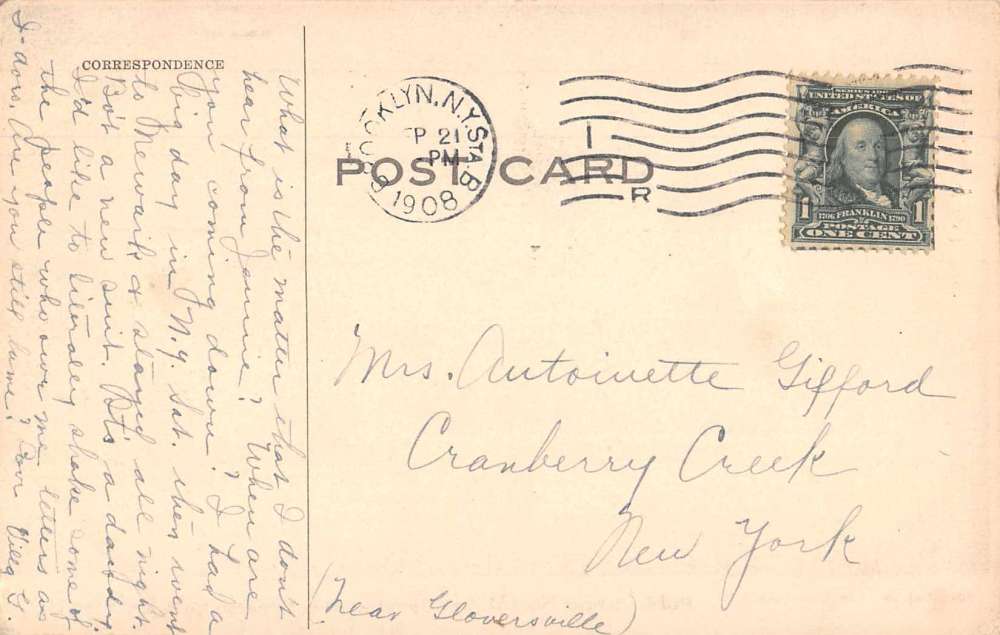 CORRESPONDENCE
What is the matter that I don't
hear from Jennie? When are
you coming down? I had a
big day in N.Y. Sat. then went
to Newark & stayed all night.
Bo't a new suit. It's a dandy
I'd like to literaley shake some of
the people who owe me letters as
I do. Are you still lame?
BROOKLYN, N.Y. STA. B
SEP 21
PM
1908
1
R
POST CARD
SERIES 1902
UNITED STATES OF
AMERICA
1 1706 FRANKLIN 1790 1
POSTAGE
ONE CENT
Mrs. Antoinette Gifford
Cranberry Creek
New York
(Near Gloversville)